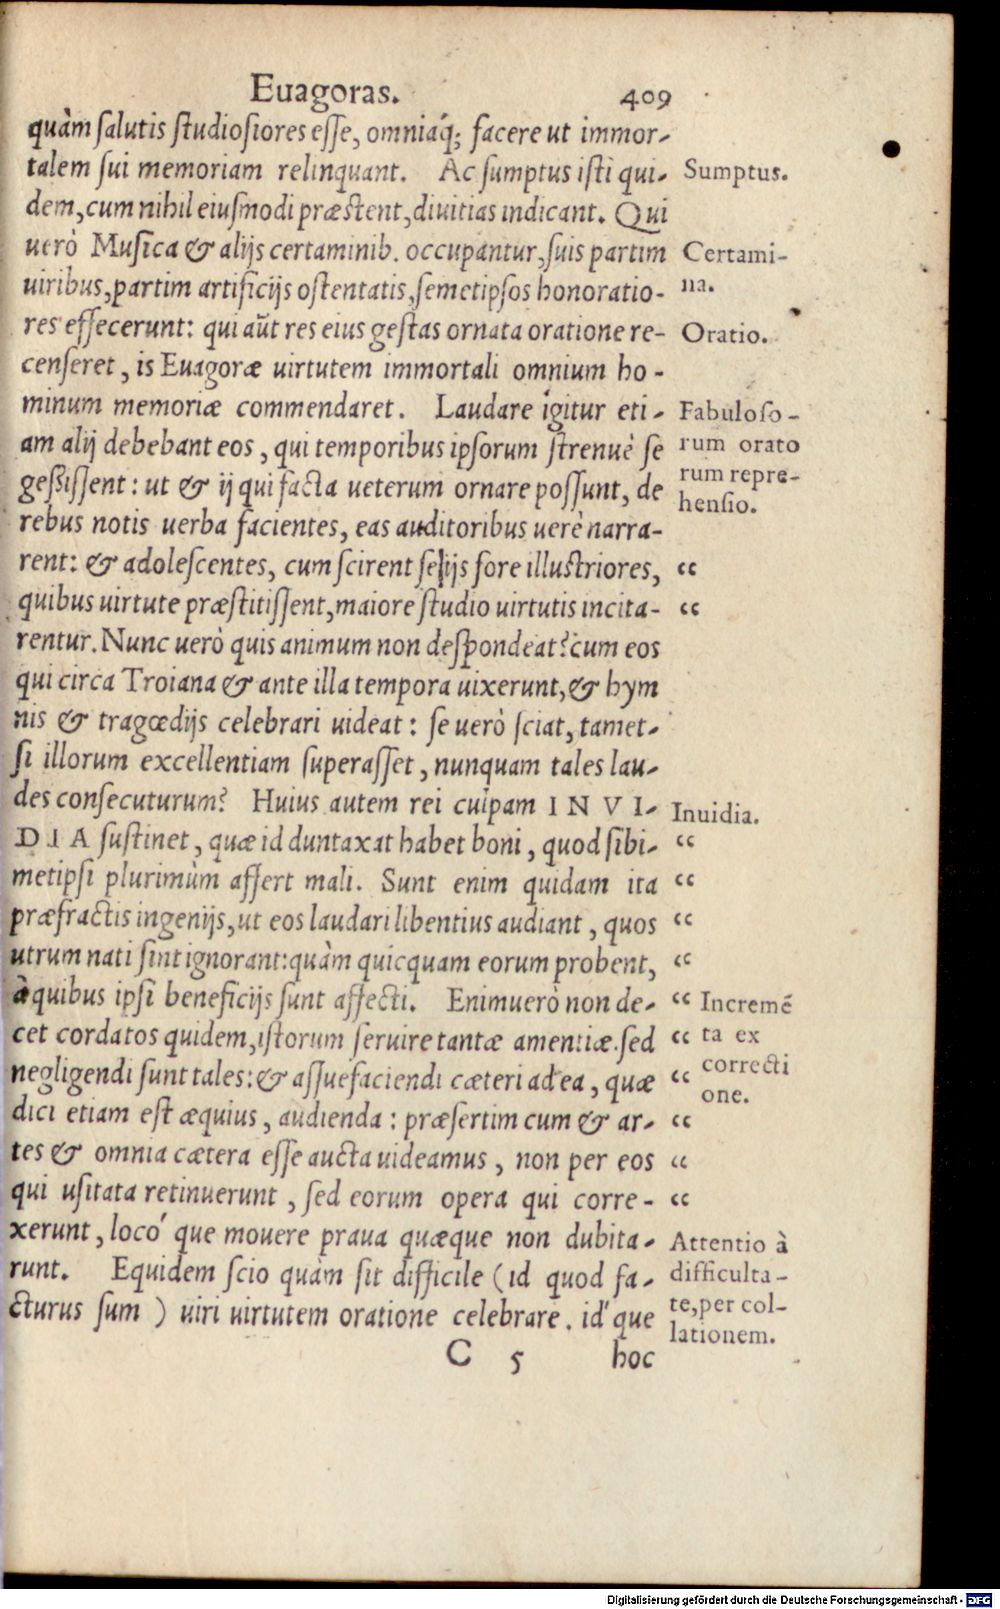 Euagoras. 409
quàm salutis studiosiores esse, omniaq́; facere ut immor-
talem sui memoriam relinquant. Ac sumptus isti qui- Sumptus.
dem, cum nihil eiusmodi præstent, diuitias indicant. Qui
uerò Musica & alijs certaminib. occupantur, suis partim Certami-
uiribus, partim artificijs ostentatis, semetipsos honoratio- na.
res effecerunt: qui aũt res eius gestas ornata oratione re- Oratio.
censeret, is Euagoræ uirtutem immortali omnium ho-
minum memoriæ commendaret. Laudare igitur eti- Fabuloso-
am alij debebant eos, qui temporibus ipsorum strenuè se rum orato
gessissent: ut & ij qui facta ueterum ornare possunt, de rum repre-
rebus notis uerba facientes, eas auditoribus uerè narra- hensio.
rent: & adolescentes, cum scirent se ijs fore illustriores, “
quibus uirtute præstitissent, maiore studio uirtutis incita- “
rentur. Nunc uerò quis animum non despondeat? cum eos
qui circa Troiana & ante illa tempora uixerunt, & hym
nis & tragœdijs celebrari uideat: se uerò sciat, tamet-
si illorum excellentiam superasset, nunquam tales lau-
des consecuturum? Huius autem rei culpam INVI- Inuidia.
DIA sustinet, quæ id duntaxat habet boni, quod sibi- “
metipsi plurimùm affert mali. Sunt enim quidam ita “
præfractis ingenijs, ut eos laudari libentius audiant, quos “
utrum nati sint ignorant: quàm quicquam eorum probent, “
à quibus ipsi beneficijs sunt affecti. Enimuerò non de- “ Incremẽ
cet cordatos quidem, istorum seruire tantæ amentiæ. sed “ ta ex
negligendi sunt tales: & assuefaciendi cæteri ad ea, quæ “ correcti
dici etiam est æquius, audienda: præsertim cum & ar- “ one.
tes & omnia cætera esse aucta uideamus, non per eos “
qui usitata retinuerunt, sed eorum opera qui corre- “
xerunt, locó que mouere praua quæque non dubita- Attentio à
runt. Equidem scio quàm sit difficile (id quod fa- difficulta-
cturus sum) uiri uirtutem oratione celebrare. id́ que te, per col-
lationem.
C 5 hoc
Digitalisierung gefördert durch die Deutsche Forschungsgemeinschaft - DFG